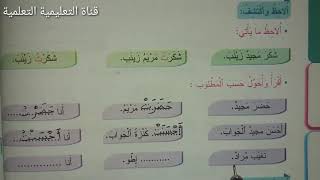 قناة التعليمية التعلمية
أُلَاحِظُ وَأَكْتَشِفُ:
• أُلَاحِظُ مَا يَأْتِي:
شَكَرَ مَجِيدٌ زَيْنَبَ. شَكَرَتْ مَرْيَمُ زَيْنَبَ. شَكَرْتُ زَيْنَبَ.
• أَقْرَأُ وَأُحَوِّلُ حَسَبَ الْمَطْلُوبِ:
حَضَرَ مَجِيدٌ. حَضَرَتْ مَرْيَمُ. أَنَا حَضَرْتُ
أَحْسَنَ مَجِيدٌ الْجَوَابَ. كَنْزَةُ الْجَوَابَ. أَنَا
تَغَيَّبَ مُرَادٌ. ............ إِطُّو. أَنَا ............